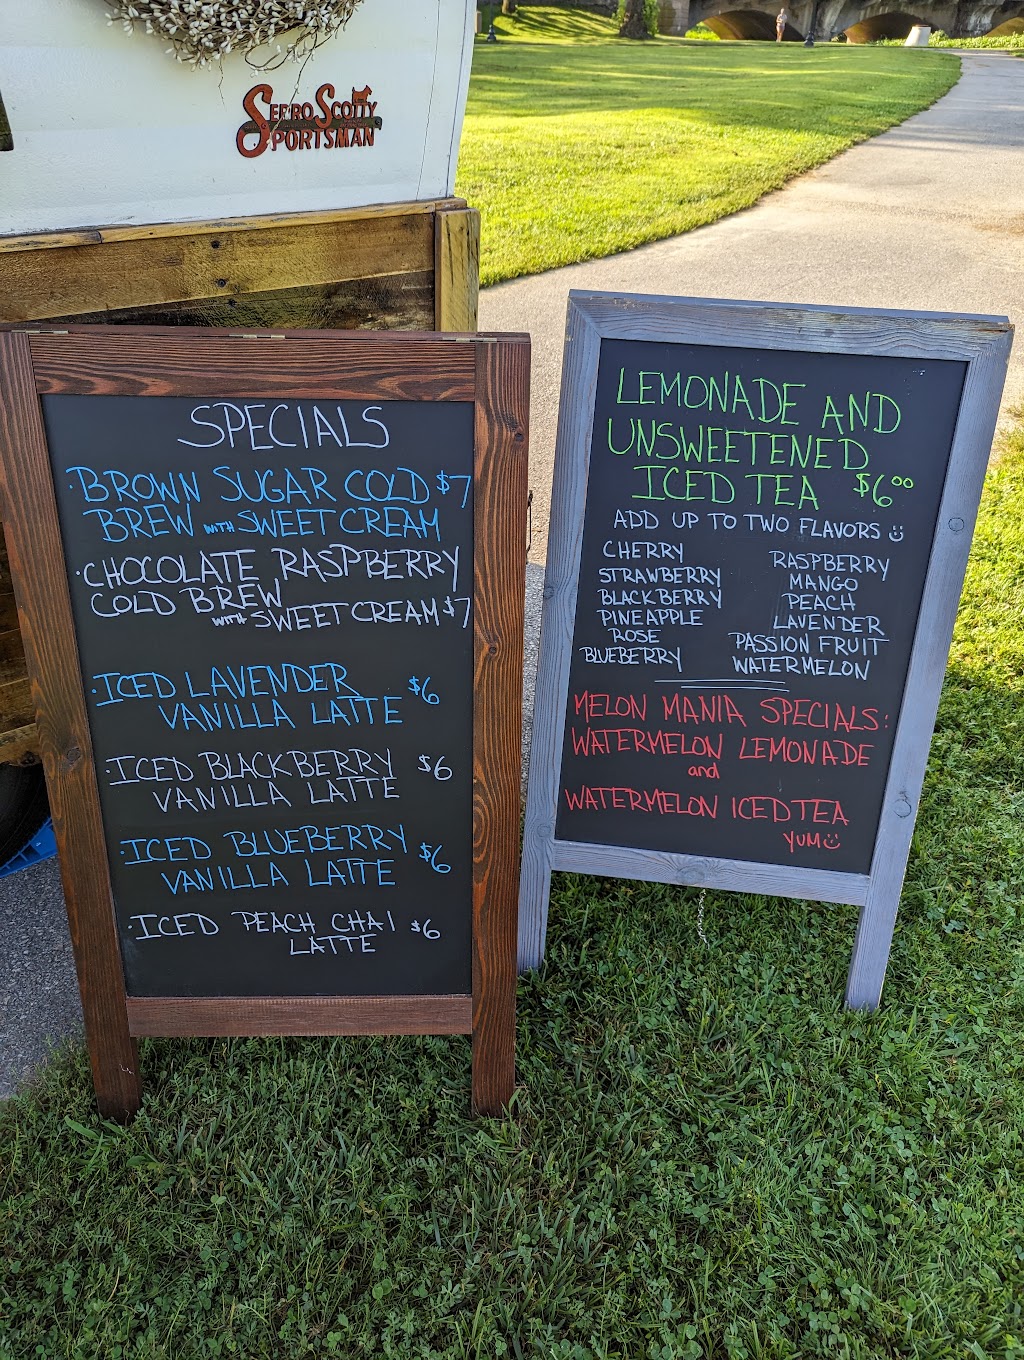 SERRO SCOTTY
SPORTSMAN
SPECIALS
·BROWN SUGAR COLD $7
BREW WITH SWEET CREAM
·CHOCOLATE RASPBERRY
COLD BREW
WITH SWEET CREAM $7
·ICED LAVENDER $6
VANILLA LATTE
·ICED BLACKBERRY $6
VANILLA LATTE
·ICED BLUEBERRY $6
VANILLA LATTE
·ICED PEACH CHAI $6
LATTE
LEMONADE AND
UNSWEETENED
ICED TEA $6.00
ADD UP TO TWO FLAVORS
CHERRY
STRAWBERRY
BLACKBERRY
PINEAPPLE
ROSE
BLUEBERRY
RASPBERRY
MANGO
PEACH
LAVENDER
PASSION FRUIT
WATERMELON
MELON MANIA SPECIALS:
WATERMELON LEMONADE
and
WATERMELON ICED TEA
YUM